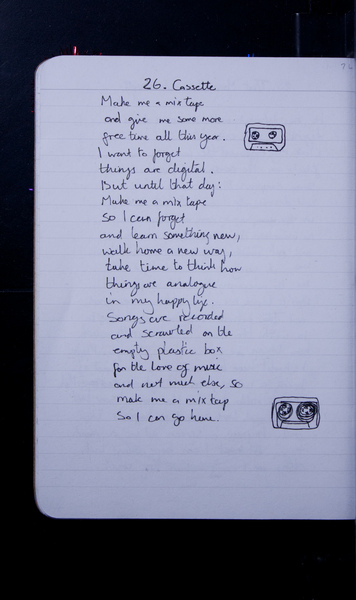 26. Cassette
Make me a mix tape
and give me some more
free time all this year.
I want to forget
things are digital.
But until that day:
Make me a mix tape
So I can forget
and learn something new,
walk home a new way,
take time to think how
things are analogue
in my happy life.
Songs are recorded
and scrawled on the
empty plastic box
for the love of music
and not much else, so
make me a mix tap
So I can go home.